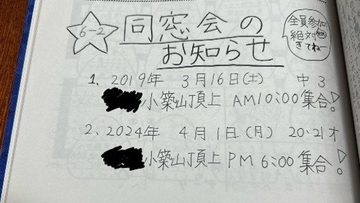 6-2
同窓会の
お知らせ
全員参加
絶対
きてねー
1、2019年 3月16日(土) 中3
小築山頂上 AM10:00集合!
2、2024年 4月1日(月) 20・21才
小築山頂上 PM 6:00 集合!